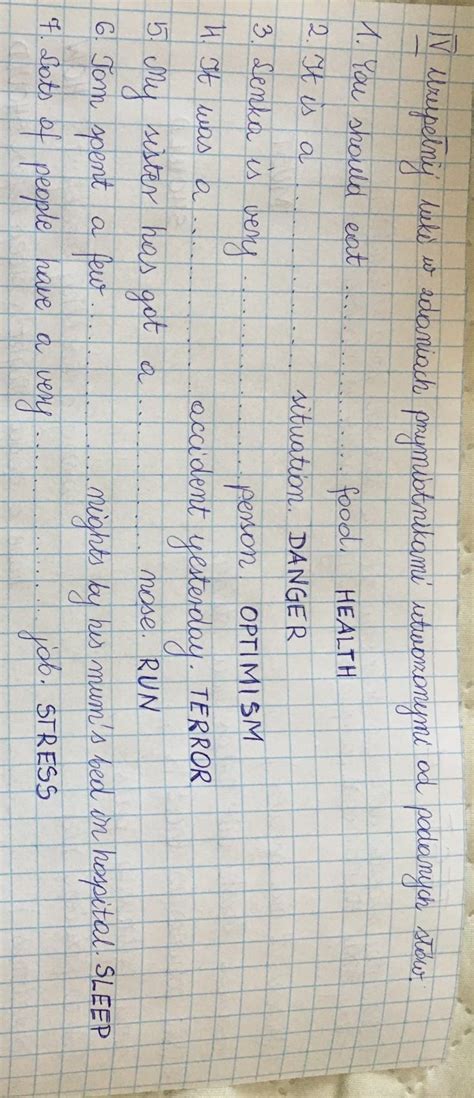 IV Uzupełnij luki w zdaniach przymiotnikami utworzonymi od podanych słów.
1. You should eat .............. food. HEALTH
2. It is a .............. situation. DANGER
3. Lenka is very .............. person. OPTIMISM
4. It was a .............. accident yesterday. TERROR
5. My sister has got a .............. nose. RUN
6. Tom spent a few .............. nights by his mum's bed in hospital. SLEEP
7. Lots of people have a very .............. job. STRESS